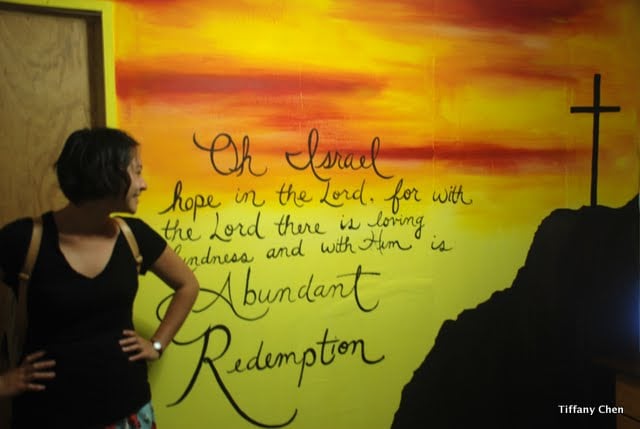 Oh Israel
hope in the Lord. for with
the Lord there is loving
kindness and with Him is
Abundant
Redemption
Tiffany Chen